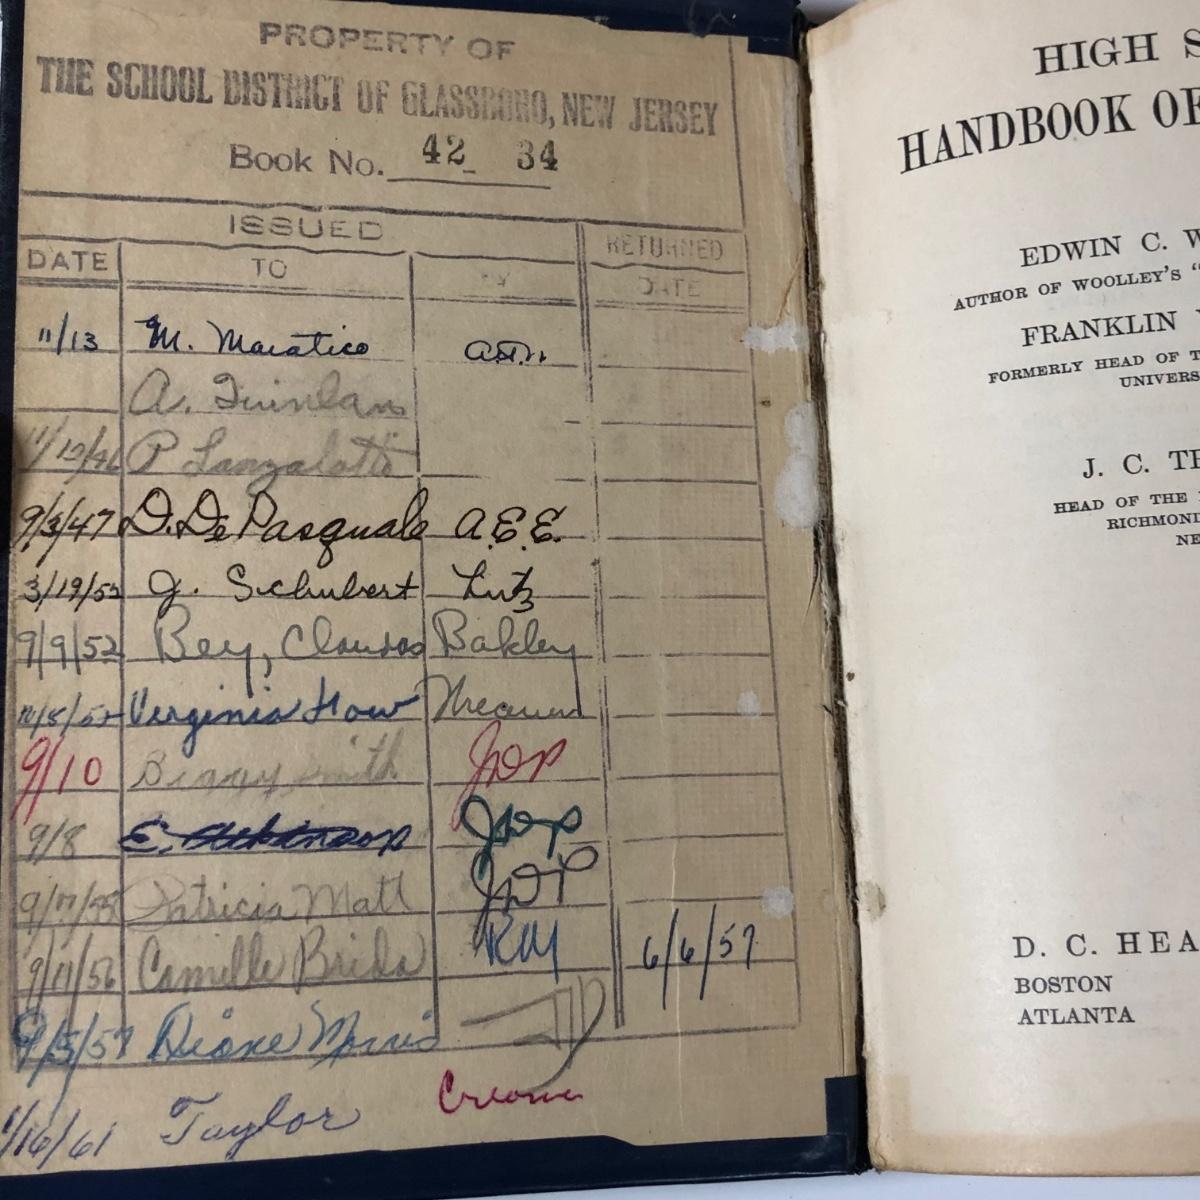 PROPERTY OF
THE SCHOOL DISTRICT OF GLASSBORO, NEW JERSEY
Book No. 42 34
ISSUED
RETURNED
DATE TO BY DATE
11/13 M. Maiatico
A. Quinlan
P Lanzalotti
9/3/47 D. De Pasquale A.E.E.
3/19/52 J. Schubert Lutz
9/9/52 Bey, Bakley
Virginia How
9/10 Smith JDP
9/8 E. Atkinson JDP
Patricia Matt JDP
9/11/56 Camille Brida RM 6/6/57
9/5/57 Diane Morris
1/16/61 Taylor
HIGH S
HANDBOOK OF
EDWIN C. W
AUTHOR OF WOOLLEY'S "
FRANKLIN
FORMERLY HEAD OF T
UNIVERS
J. C. TR
HEAD OF THE
RICHMOND
NE
D. C. HEA
BOSTON
ATLANTA